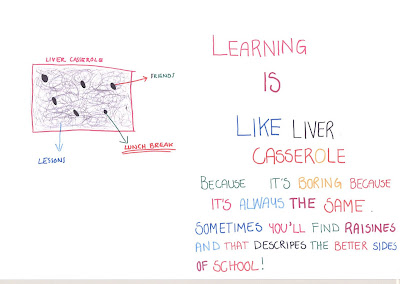 LIVER CASSEROLE
FRIENDS
LUNCH BREAK
LESSONS
LEARNING
IS
LIKE LIVER
CASSEROLE
BECAUSE IT'S BORING BECAUSE
IT'S ALWAYS THE SAME.
SOMETIMES YOU'LL FIND RAISINES
AND THAT DESCRIPES THE BETTER SIDES
OF SCHOOL!